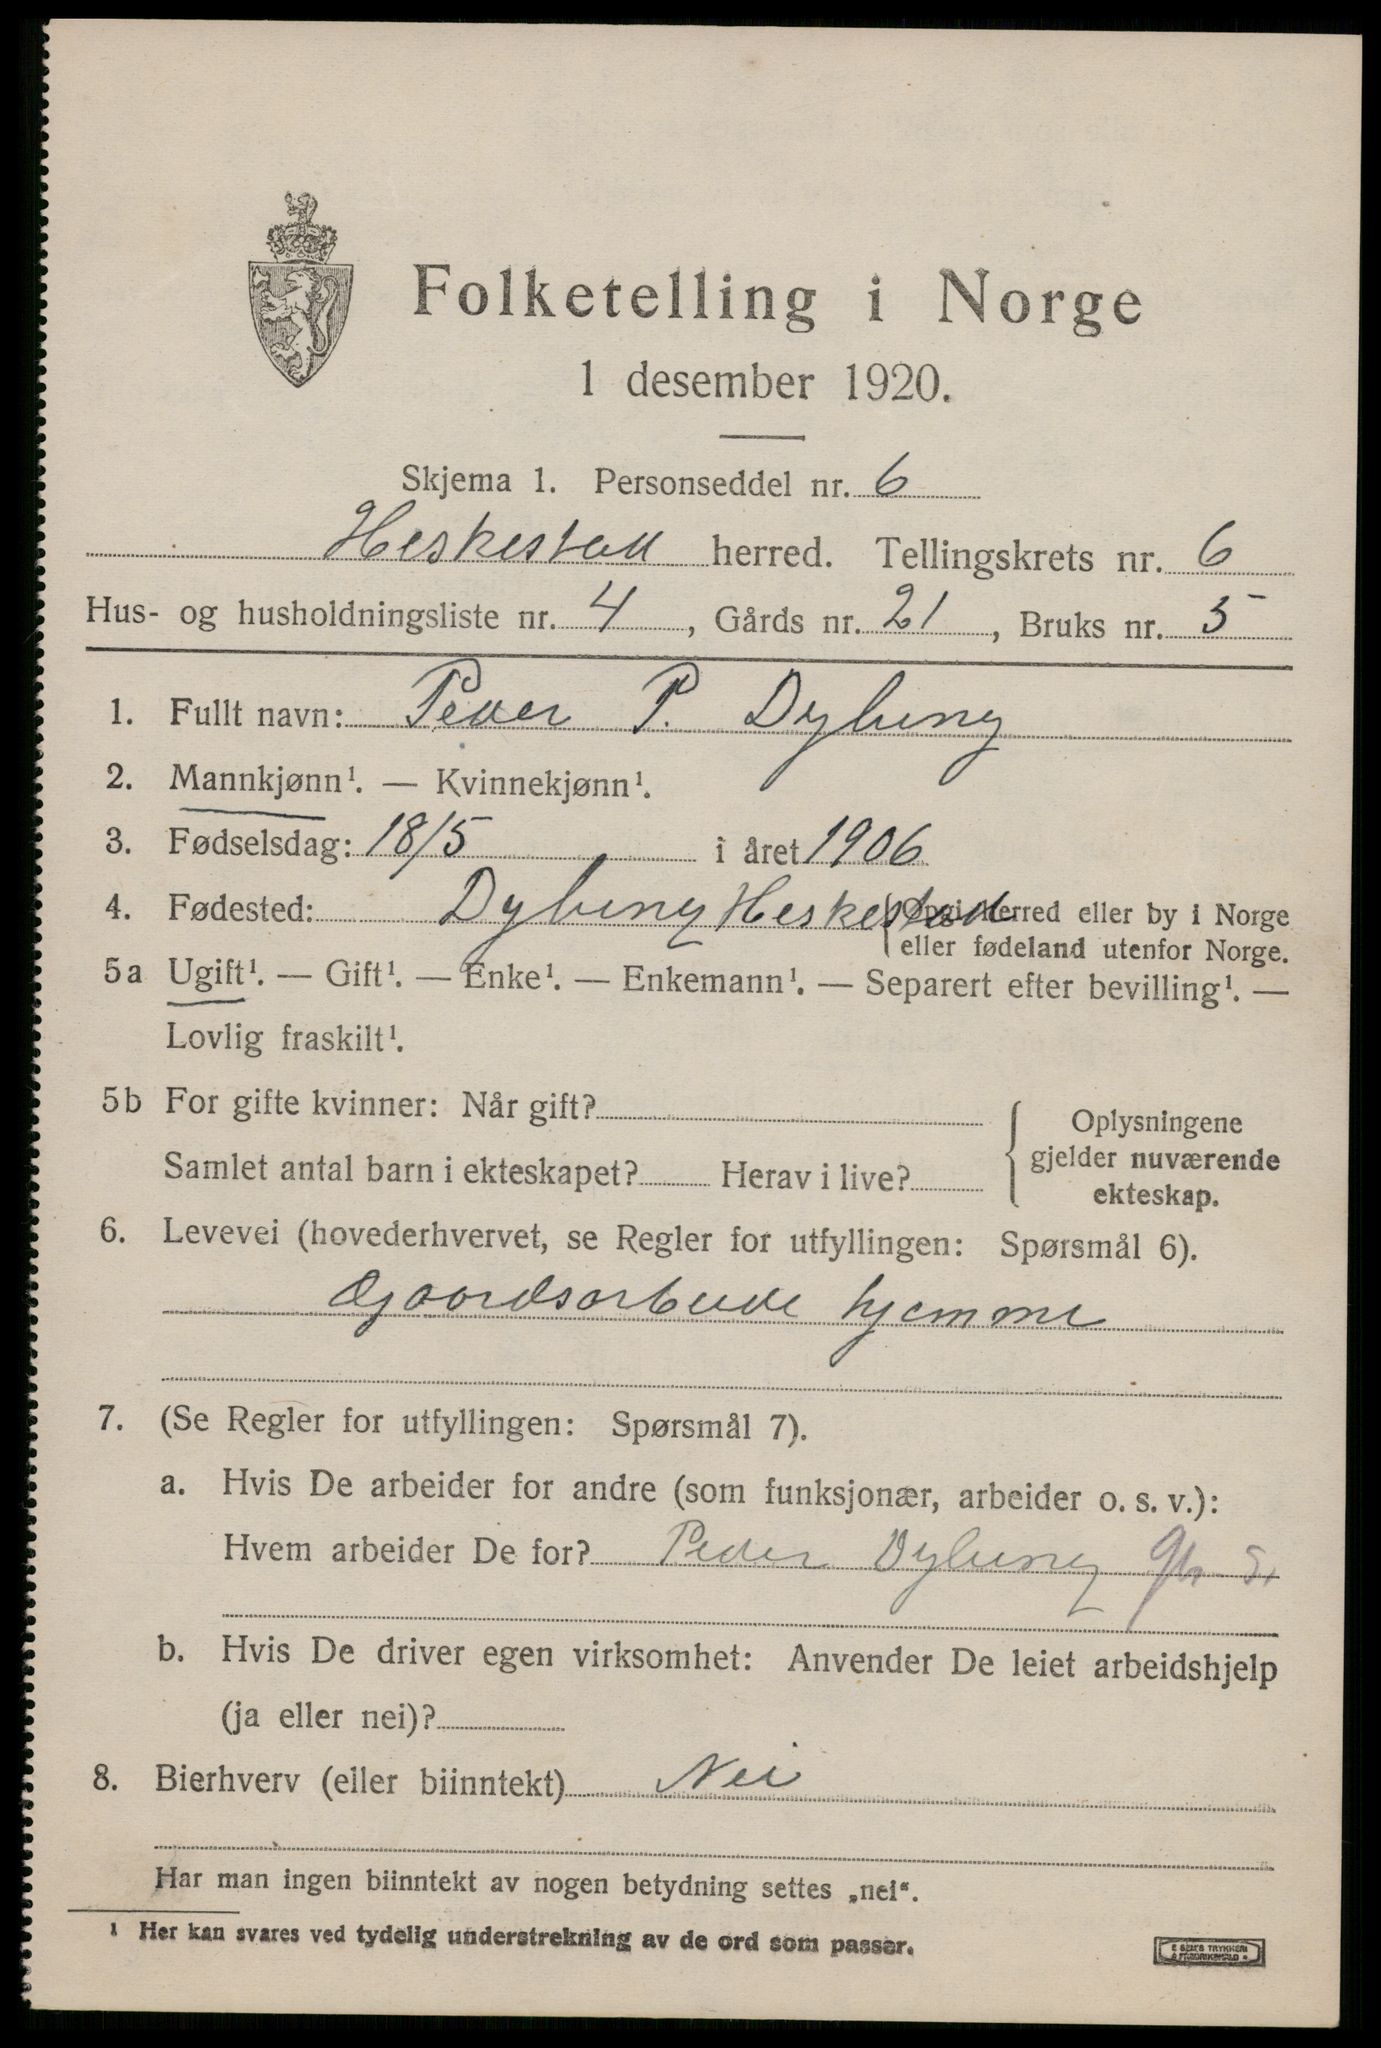 Folketelling i Norge
1 desember 1920.
Skjema 1. Personseddel nr. 6
Heskestad herred. Tellingskrets nr. 6
Hus- og husholdningsliste nr. 4, Gårds nr. 21, Bruks nr. 5
1. Fullt navn: Peder P. Dybing
2. Mannkjønn¹. — Kvinnekjønn¹.
3. Fødselsdag: 18/5 i året 1906
4. Fødested: Dybing Heskestad { Opgi herred eller by i Norge
eller fødeland utenfor Norge.
5a Ugift¹. — Gift¹. — Enke¹. — Enkemann¹. — Separert efter bevilling¹. —
Lovlig fraskilt¹.
5b For gifte kvinner: Når gift?
Samlet antal barn i ekteskapet? Herav i live?
Oplysningene
gjelder nuværende
ekteskap.
6. Levevei (hovederhvervet, se Regler for utfyllingen: Spørsmål 6).
Gaardsarbeide hjemme
7. (Se Regler for utfyllingen: Spørsmål 7).
a. Hvis De arbeider for andre (som funksjonær, arbeider o. s. v.):
Hvem arbeider De for? Peder Dybing
b. Hvis De driver egen virksomhet: Anvender De leiet arbeidshjelp
(ja eller nei)?
8. Bierhverv (eller biinntekt) Nei
Har man ingen biinntekt av nogen betydning settes „nei“.
¹ Her kan svares ved tydelig understrekning av de ord som passer.
E SEM'S TRYKKERI
FREDRIKSHALD